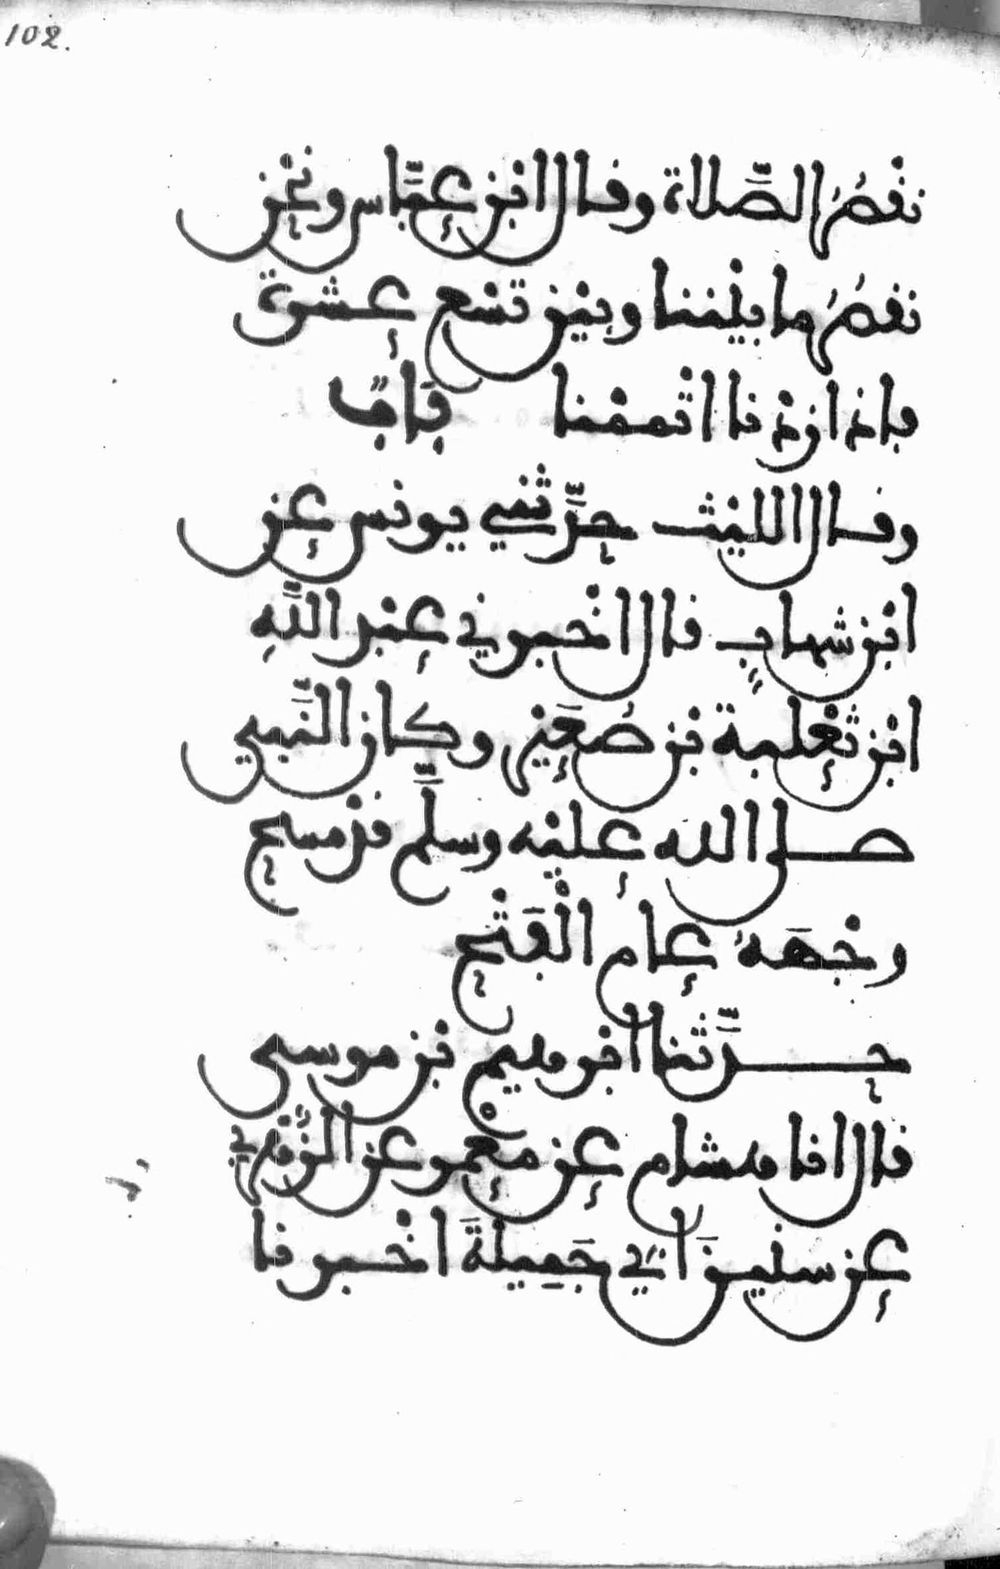 102.
نَقْصُرُ الصَّلاة وقال ابْن عبَّاس ونحْن
نقصُرُ ما بيْننا وبيْن تسْع عشرة
فإذا زدْنا اتْممْنا بَابٌ
وقال الليْث حدَّثني يونس عن
ابْن شهابٍ قال اخْبرني عبْد اللَّهِ
ابْن ثعْلبة بْن صُعَيْر وكان النَّبي
صلى الله عليْه وسلَّم قدْ مسح
وجْهَهُ عام الْفَتْح
حدَّثنا ابرهيم بْن موسى
قال انا هشام عن معْمر عن الزُّهْري
عن سنْين ابي جَمِيلَةَ اخْبرنا